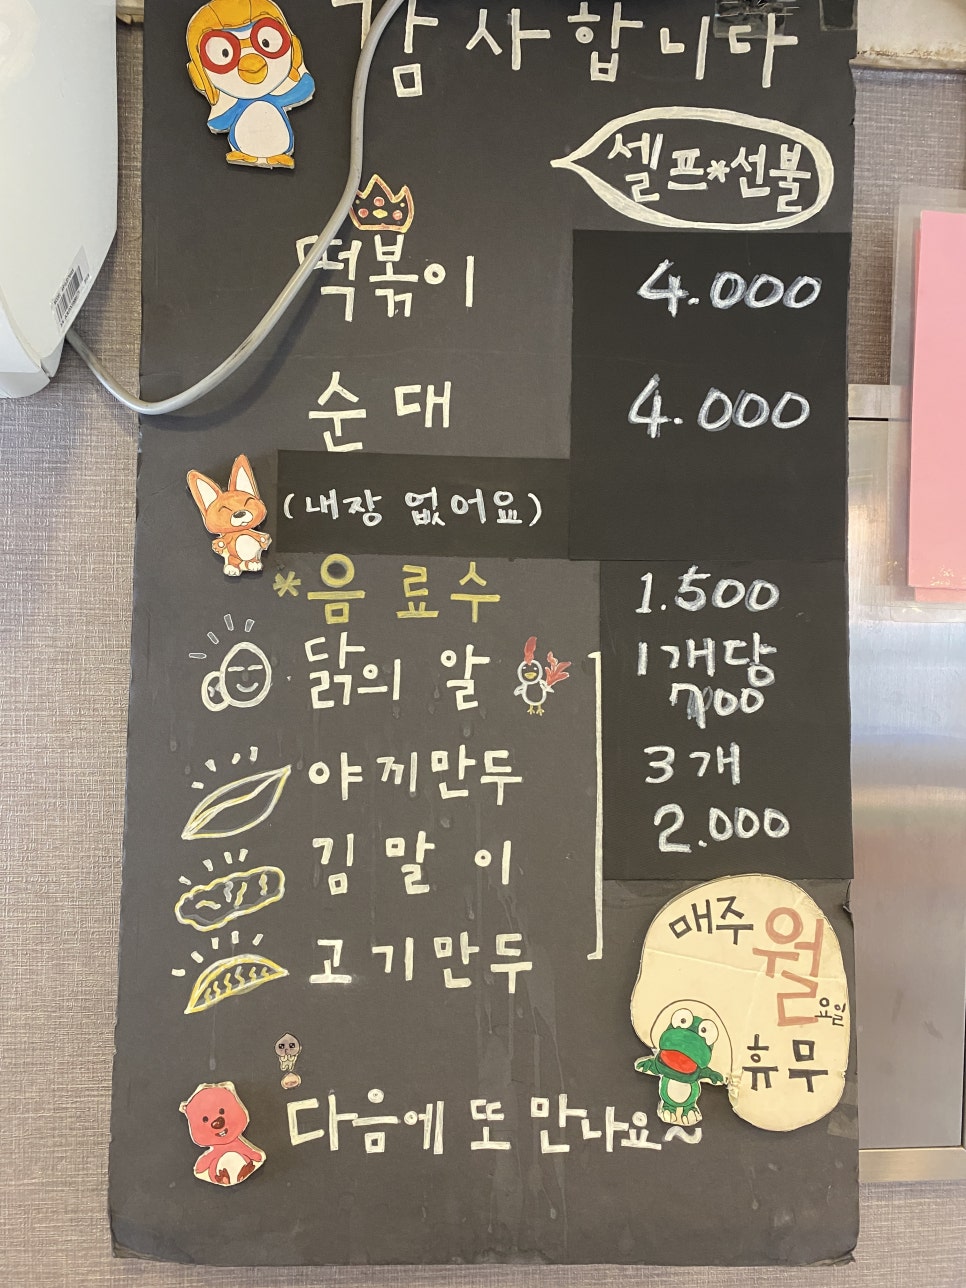 감사합니다
셀프*선불
떡볶이 4.000
순대 4.000
(내장 없어요)
*음료수 1.500
닭의 알 1개당
700
야끼만두 3개
2.000
김말이
고기만두
매주 월요일
휴무
다음에 또 만나요~